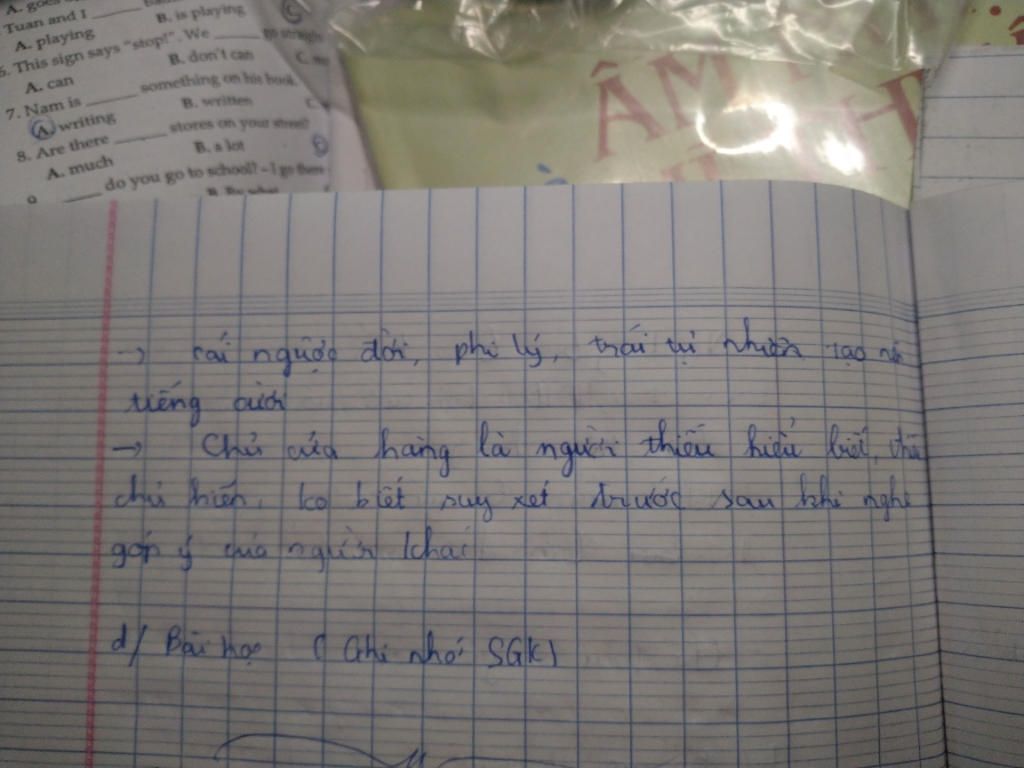 A. goes
Tuan and I
A. playing B. is playing C
6. This sign says "stop!". We ______ go straight
A. can B. don't can C.
7. Nam is ______ something on his book.
A. writing B. written C.
8. Are there ______ stores on your street?
A. much B. a lot
______ do you go to school? – I go there
ÂM
-> cái ngược đời, phi lý, trái tự nhiên tạo nên
tiếng cười
-> Chủ cửa hàng là người thiếu hiểu biết, thiếu
chủ kiến, ko biết suy xét trước sau khi nghe
góp ý của người khác
d/ Bài học ( Ghi nhớ SGK)